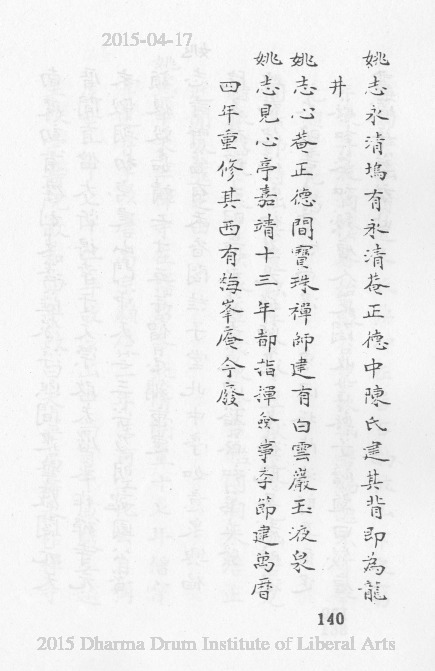 2015-04-17
姚志永清塢有永清菴正德中陳氏建其背即為龍
井
姚志心菴正德間寶珠禪師建有白雲巖玉液泉
姚志見心亭嘉靖十三年都指揮僉事李節建萬曆
四年重修其西有梅峯庵今廢
140
2015 Dharma Drum Institute of Liberal Arts